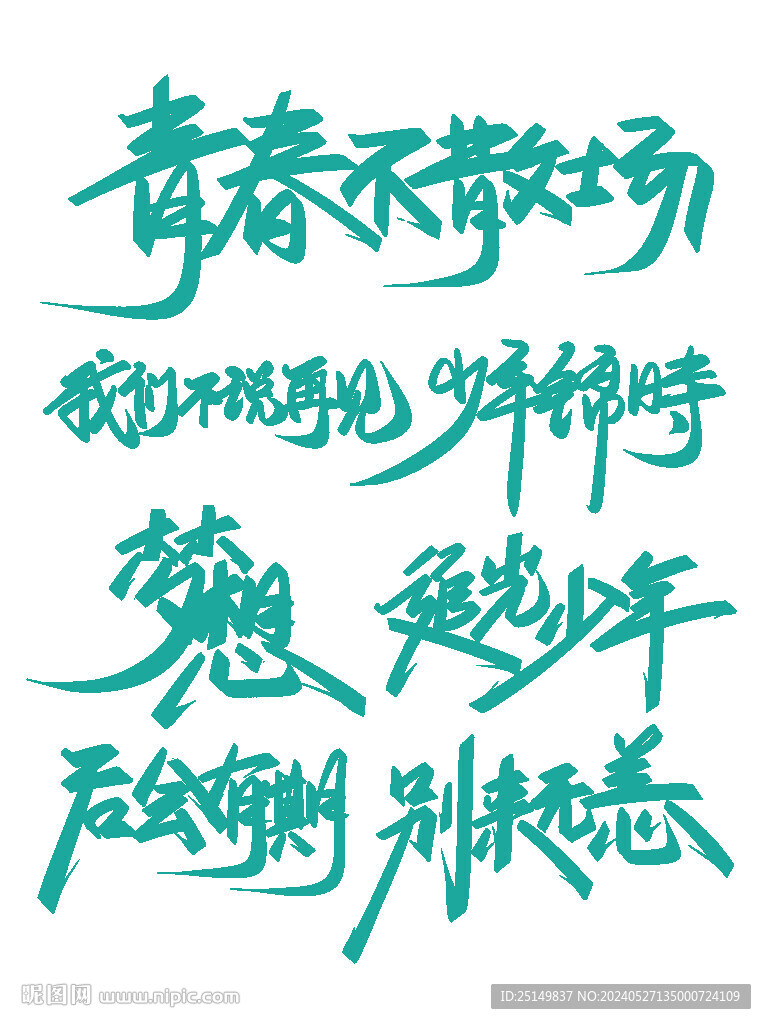 青春不散场
我们不说再见 少年锦時
梦想 追光少年
后会有期 别来无恙
昵图网 www.nipic.com ID:25149837 NO:20240527135000724109